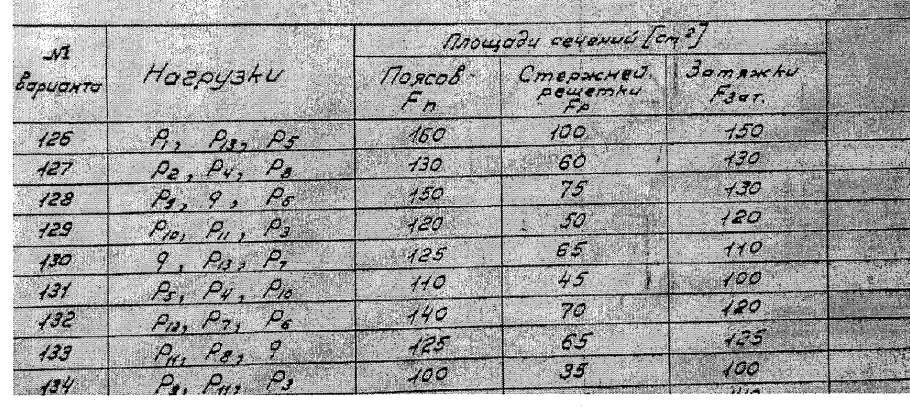 № варианта Нагрузки Площади сечений [см²]
Поясов Fп Стержней решетки Fр Затяжки Fзат.
126 P1, P13, P5 160 100 150
127 P2, P4, P8 130 60 130
128 P9, q, P6 150 75 130
129 P10, P11, P3 120 50 120
130 q, P13, P7 125 65 110
131 P5, P4, P10 110 45 100
132 P7, P6 140 70 120
133 P11, P8, q 125 65 125
134 P9, P11, P3 100 35 100